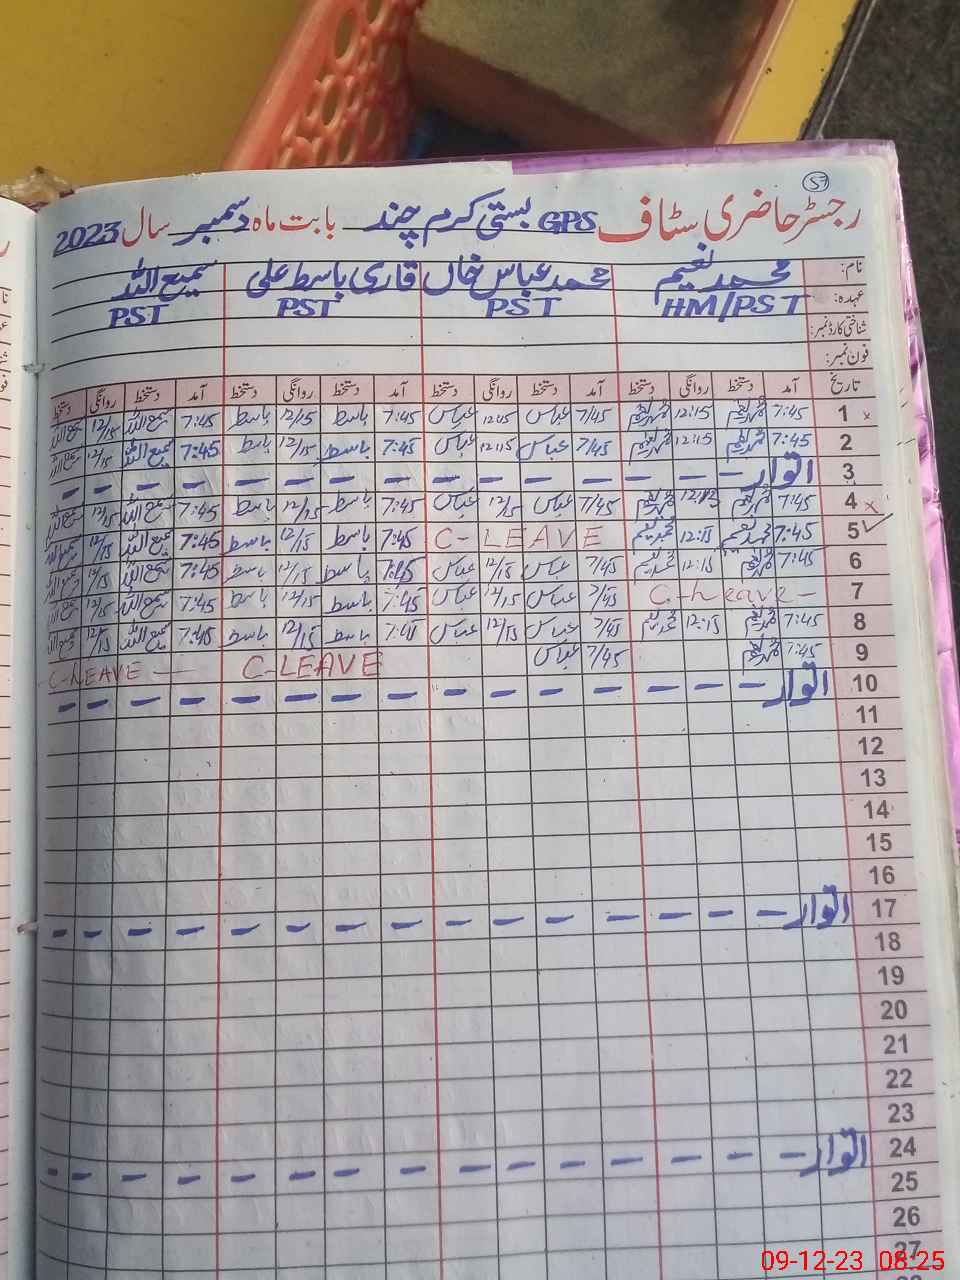 57
رجسٹر حاضری سٹاف GPS بستی کرم چند بابت ماہ دسمبر سال 2023
نام: محمد نعیم محمد عباس خاں قاری باسط علی سمیع اللہ
عہدہ: HM/PST PST PST PST
شناختی کارڈ نمبر:
فون نمبر:
تاریخ آمد دستخط روانگی دستخط آمد دستخط روانگی دستخط آمد دستخط روانگی دستخط آمد دستخط روانگی دستخط
1 7:45 12:15 7/45 عباس 12:15 عباس 7:45 باسط 12/15 باسط 7:45 سمیع اللہ 12/15 سمیع اللہ
2 7:45 12:15 7/45 عباس 12:15 عباس 7:45 باسط 12/15 باسط 7:45 سمیع اللہ 12/15 سمیع اللہ
3 اتوار
4 7:45 7/45 عباس 12/15 عباس 7:45 باسط 12/15 باسط 7:45 سمیع اللہ 12/15 سمیع اللہ
5 7:45 محمد نعیم 12:15 محمد نعیم C-LEAVE 7:45 باسط 12/15 باسط 7:45 سمیع اللہ 12/15 سمیع اللہ
6 7:45 12:15 7/45 عباس 12/15 عباس 7:45 باسط 12/15 باسط 7:45 سمیع اللہ 12/15 سمیع اللہ
7 C-Leave- 7/45 عباس 12/15 عباس 7:45 باسط 12/15 باسط 7:45 سمیع اللہ 12/15 سمیع اللہ
8 7:45 12:15 7/45 عباس 12/15 عباس 7:45 باسط 12/15 باسط 7:45 سمیع اللہ 12/15 سمیع اللہ
9 7:45 7/45 عباس C-LEAVE C-LEAVE
10 اتوار
11
12
13
14
15
16
17 اتوار
18
19
20
21
22
23
24 اتوار
25
26
27
09-12-23 08:25